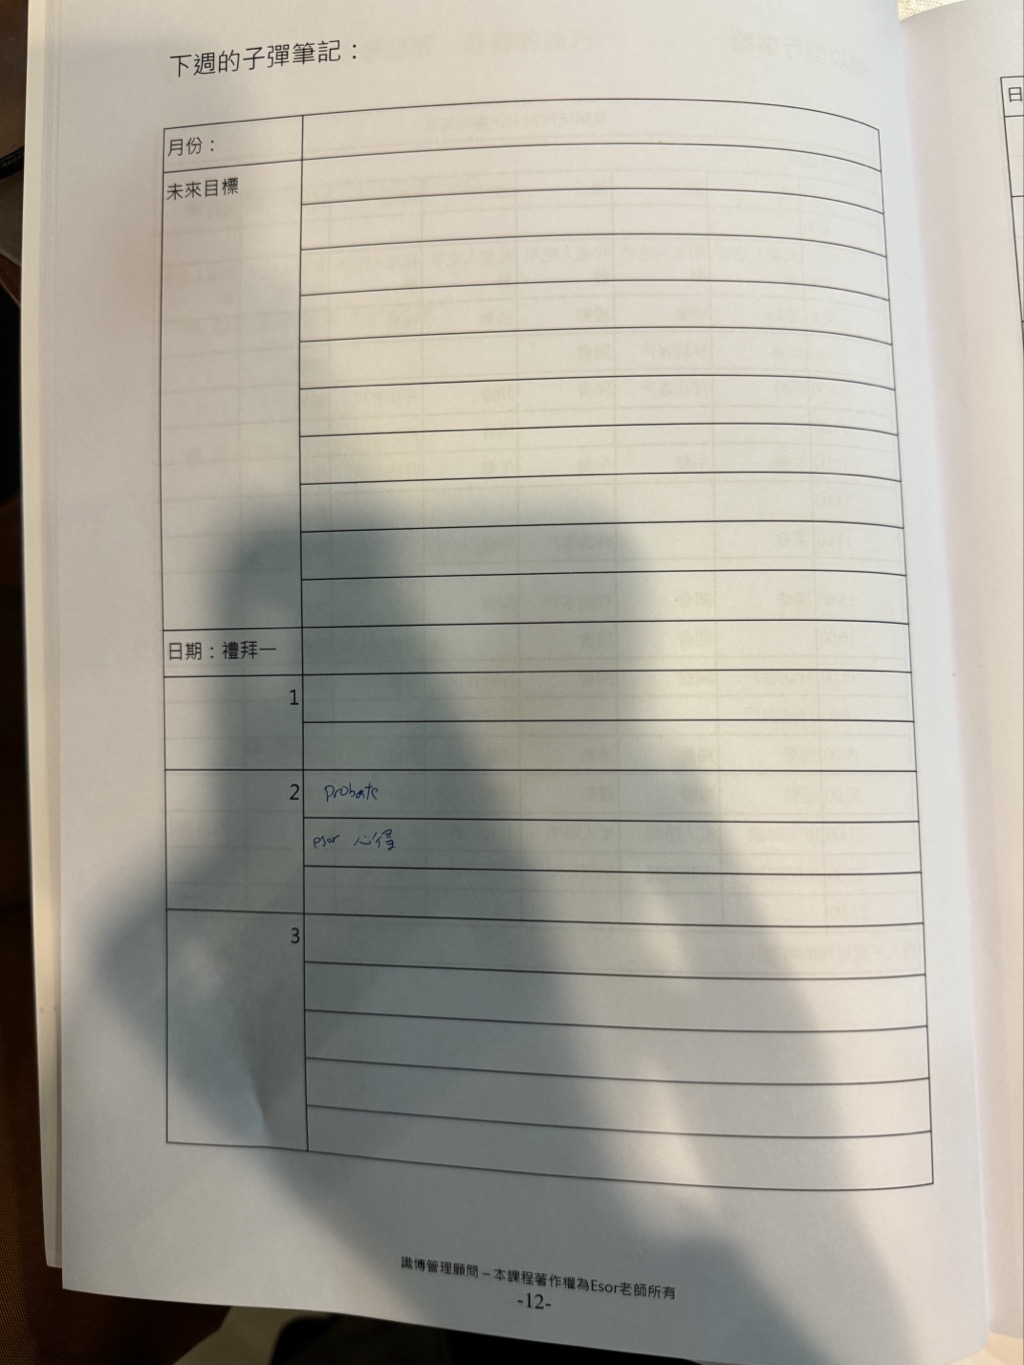 下週的子彈筆記：
月份：
未來目標
日期：禮拜一
1
2 probate
esor 心得
3
日
識博管理顧問 – 本課程著作權為Esor老師所有
-12-